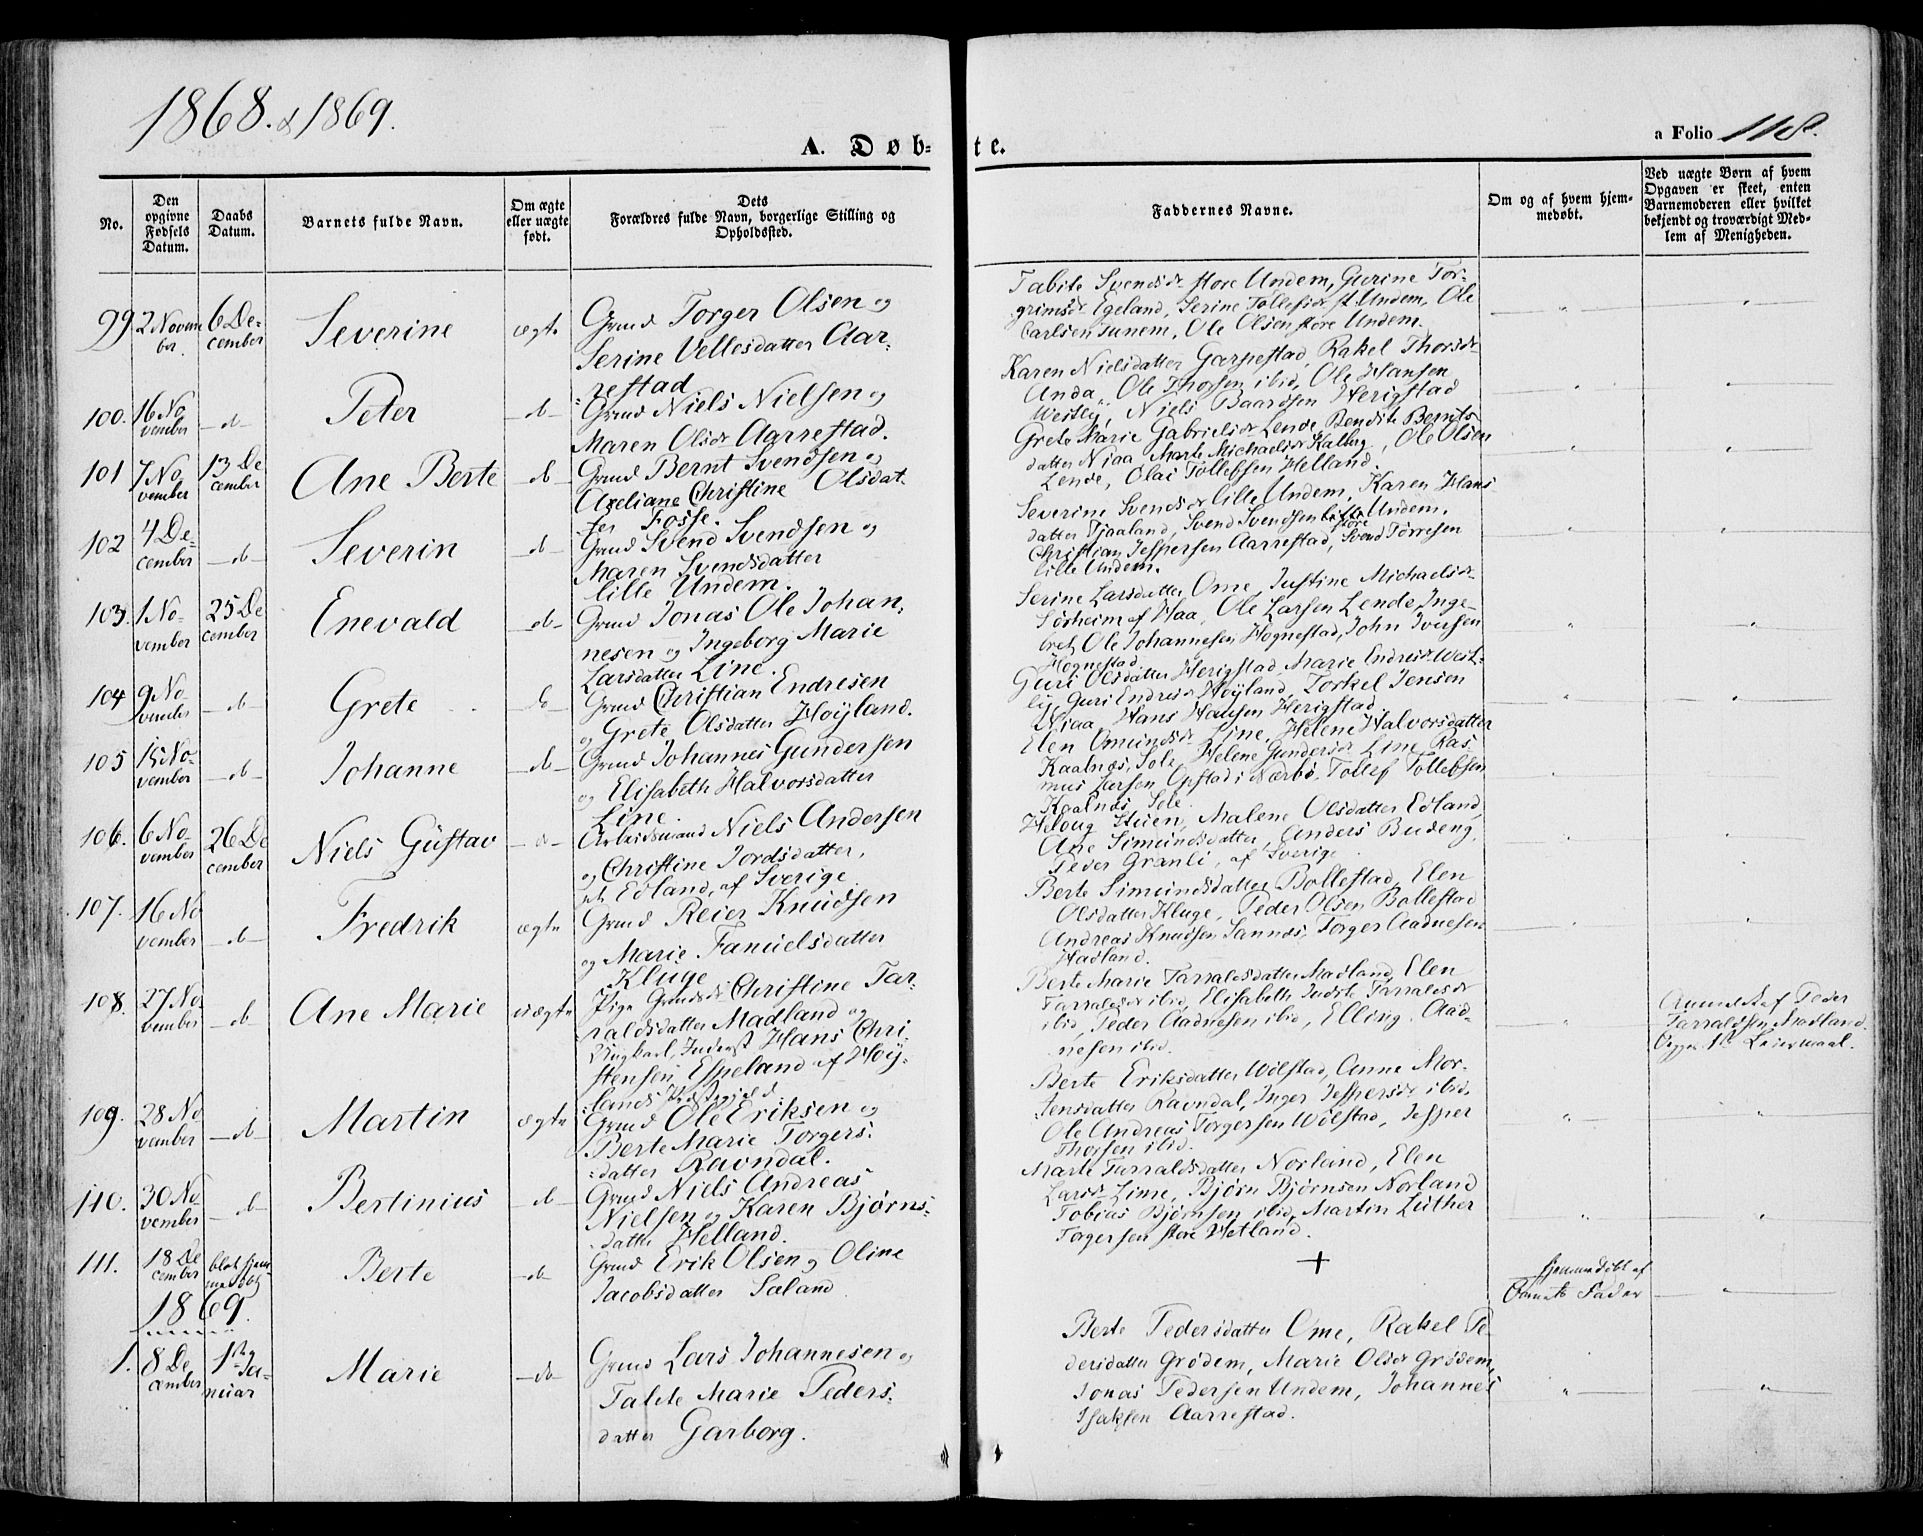 1868. & 1869.
A. Døb-
te.
a Folio 118.
No.
Den opgivne Fødsels Datum.
Daabs Datum.
Barnets fulde Navn.
Om ægte eller uægte født.
Dets Forældres fulde Navn, borgerlige Stilling og Opholdssted.
Faddernes Navne.
Om og af hvem hjem-
medøbt.
Ved uægte Børn af hvem
Opgaven er skeet, enten
Barnemoderen eller hvilket
bekjendt og troværdigt Med-
lem af Menigheden.
99. 2 Novem
ber.
6 De-
cember
Severine
ægte
Grmd Torger Olsen og
Serine Vellesdatter Aar-
restad
Tabite Svendsdr store Undem, Gurine Tor-
grimsdr Egeland, Serine Tollefsdr st. Undem, Ole
Carlsen Tunem, Ole Olsen store Undem.
100. 16 No
vember
do
Peter
do
Grmd Niels Nielsen og
Maren Olsdr Aarrestad.
Karen Nielsdatter Garpestad, Rakel Thorsdr
Anda, Ole Thorsen ibid, Ole Hansen
Westly, Niels Baardsen Herigstad
101 7 No
vember
13 De
cember
Ane Berte
do
Grmd Bernt Svendsen og
Axeliane Christine Olsdat-
ter Fosse.
Grete Marie Gabrielsdr Lende, Bendite Bernts
datter Niaa, Marte Michaelsdr Kalberg, Ole Olsen
Lende, Olai Tollefsen Helland.
102 4 De-
cember
do
Severin
do
Grmd Svend Svendsen og
Maren Svendsdatter
lille Undem.
Severine Svendsdr lille Undem, Karen Hans
datter Tjaaland, Svend Svendsen store Undem.
Christian Jespersen Aarrestad, Svend Torresen
lille Undem.
103. 1 No-
vember
25 De
cember
Enevald
do
Grmd Jonas Ole Johan-
nesen og Ingeborg Marie
Larsdatter Line.
Serine Larsdatter Ome, Justine Michaelsdr
Sørheim af Haa, Ole Larsen Lende, Inge-
bret Ole Johannesen Hognestad, John Iversen
Hognestad
104 9 No-
vember
do
Grete
do
Grmd Christian Endresen
og Grete Olsdatter Hoyland.
Guri Olsdatter Herigstad, Marie Endresdr West-
ly, Guri Endresdr Høyland, Torkel Jensen
Niaa, Hans Hansen Herigstad.
105 15 No-
vember
do
Johanne
do
Grmd Johannes Gundersen
og Elisabeth Halvorsdatter
Line.
Elen Omundsdr Line, Helene Halvorsdatter
Kaalnæs, Sole, Helene Gundersdr Line, Ras-
mus Larsen Opstad i Nærbø, Tollef Tollefsen
Kaalnæs, Sole.
106. 6 No-
vember
26 De
cember
Niels Gustav
do
Arbeidsmand Niels Andersen
og Christine Jordsdatter,
Edland, af Sverige.
Helovg Stuen, Malene Olsdatter Edland,
Ane Simundsdatter, Anders Budeng,
Peder Granli, af Sverige
107. 16 No
vember
do
Fredrik
ægte
Grmd Reier Knudsen
og Marie Fanuelsdatter
Kluge
Berte Simundsdatter Bollestad, Elen
Olsdatter Kluge, Peder Olsen Bollestad
Andreas Knudsen Sannæs, Torger Aadnesen
Hadland.
108. 27 No
vember
do
Ane Marie
uægte
Pige Christine Tar-
raldsdatter Madland og
Ungkarl, Inderst Hans Chri
stensen, Espeland af Høy-
lands Præstegjeld
Berte Marie Tarraldsdatter Madland, Elen
Tarraldsdr ibid, Elisabeth Judite Tarraldsdr
ibid, Peder Aadnesen ibid, Elling Aad-
nesen ibid.
Anmeldt af Peder
Tarraldsen Madland.
Begges 1ste Leiermaal.
109. 28 No
vember
do
Martin
ægte
Grmd Ole Eriksen og
Berte Marie Torgers-
datter Ravndal.
Berte Eriksdatter Wølstad, Anne Mor-
tensdatter Ravndal, Inger Jespersdr ibid,
Ole Andreas Torgersen Wølstad, Jesper
Thorsen ibid.
110. 30 No
vember
do
Bertinius
do
Grmd Niels Andreas
Nielsen og Karen Bjørns-
datter Helland.
Marte Tarraldsdatter Norland, Elen
Larsdr Lime, Bjørn Bjørnsen Norland
Tobias Bjørnsen ibid, Martin Luther
Torgersen store Hetland.
111. 18 De
cember
blot hjem-
medøbt
Berte
do
Grmd Erik Olsen og Oline
Jacobsdatter Sæland
+
hjemmedøbt af
Barnets Fader
1869.
1. 8 De-
cember
1ste Ja-
nuar
Marie
do
Grmd Lars Johannesen og
Talite Marie Peders-
datter Garborg.
Berte Pedersdatter Ome, Rakel Pe-
dersdatter Grødem, Marie Olsdr Grødem,
Jonas Pedersen Undem, Johannes
Isaksen Aarrestad.